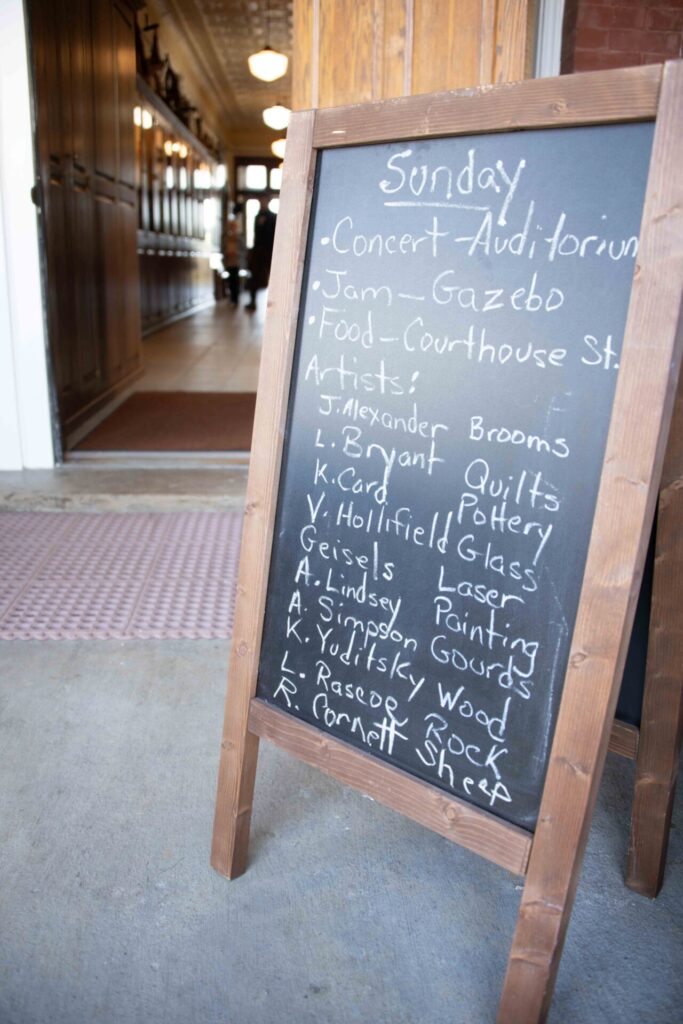 Sunday
• Concert - Auditorium
• Jam - Gazebo
• Food - Courthouse St.
Artists:
J. Alexander Brooms
L. Bryant Quilts
K. Card Pottery
V. Hollifield Glass
Geisels Laser
A. Lindsey Painting
A. Simpson Gourds
K. Yuditsky Wood
L. Rascoe Rock
R. Cornett Sheep